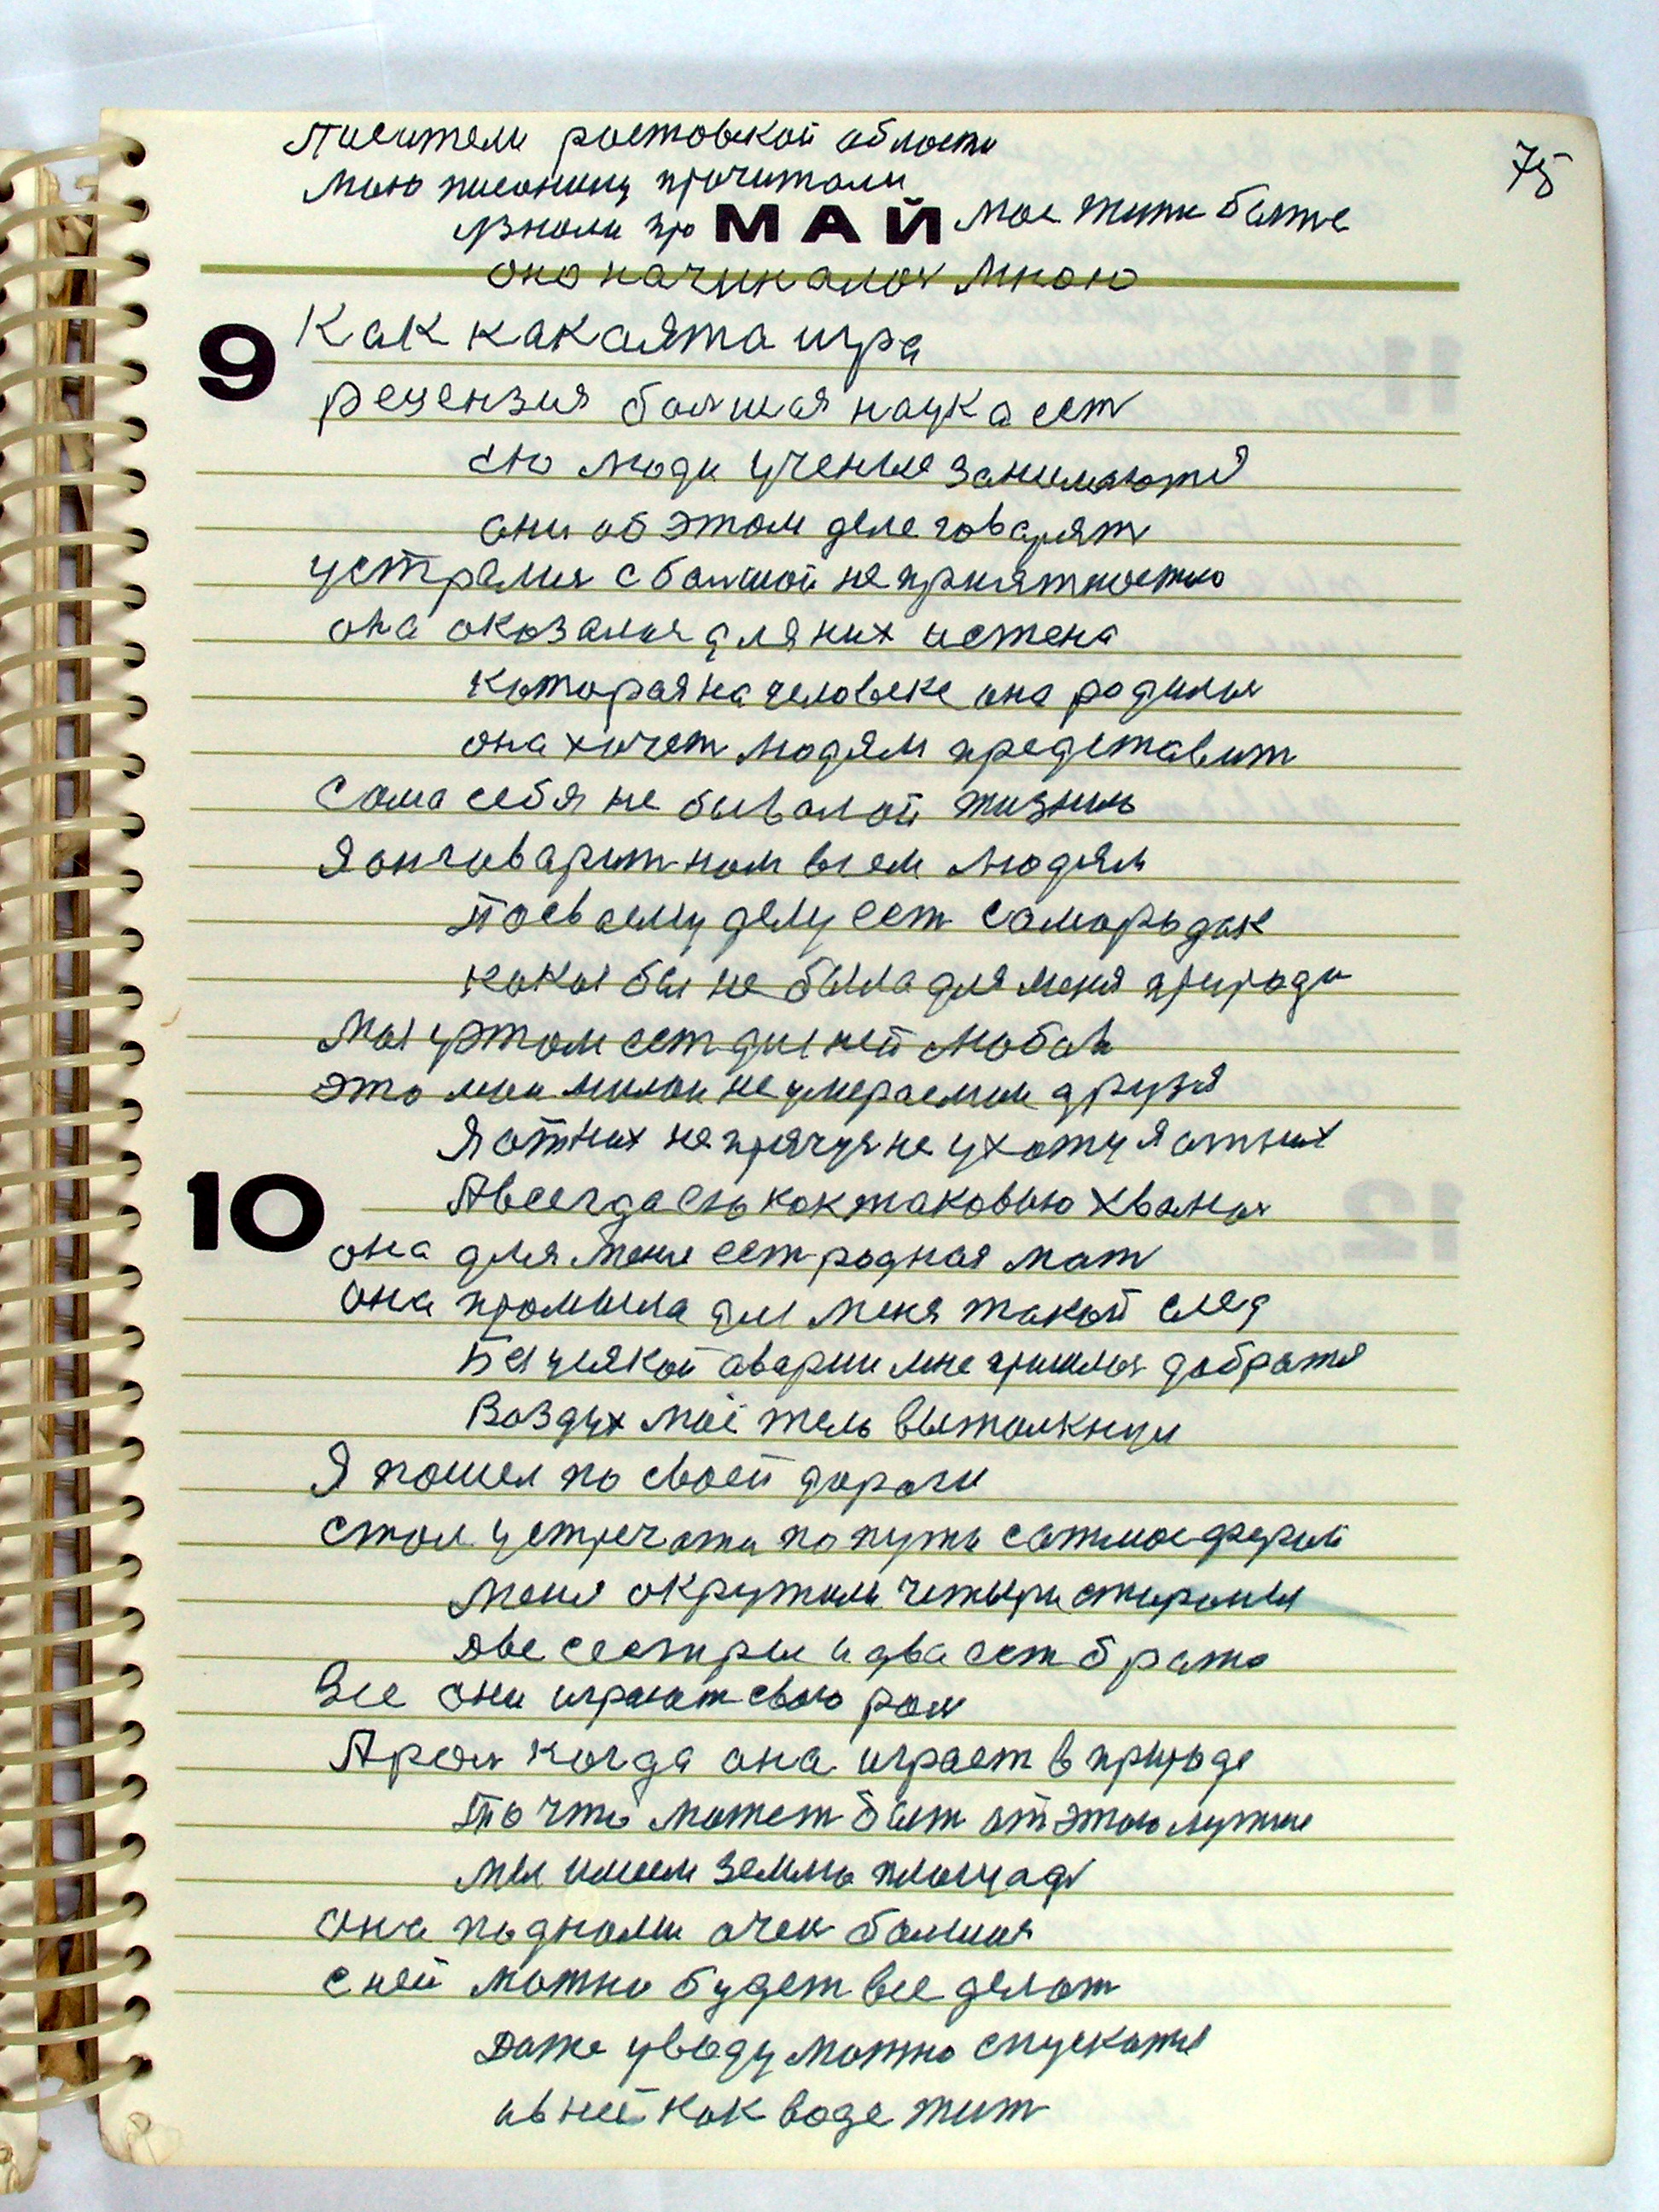 75
Писители ростовской области
мою писанину прочитали
узнали про МАЙ мое жити бытие
оно начиналос мною
9 Как какаята игра
рецензия болшая наука ест
ею люди ученые занимаются
они об этом деле говарят
устрелис с болшой неприятностю
она оказалис для них истена
каторая на человеке она родилис
она хочет людям представит
сома себя не бывалой жизнию
Я он говарит нам всем людям
По своему делу ест саморадак
какая бы не была для меня природа
мы у этом ест для ней любов
это мои милаи неумераемаи друзя
Я от них не прячус не ухажу я от них
10 А всегда ею как таковою хвалюс
она для мене ест родная мат
она промыла для меня такой след
Без усякой аварии мне пришлос добратся
Воздух моё тело вытолкнул
Я пошел по своей дароги
стал устречати по путь с атмосферой
меня окружали четыри стараны
Две сестры и два ест брата
Все они играют свою рол
А рол когда она играет в природе
То что может быт от этого лутше
мы имеем землю площад
она под нами очен болшая
с ней можно будет все делат
Даже у воду можно спускатся
и в ней как воде жит